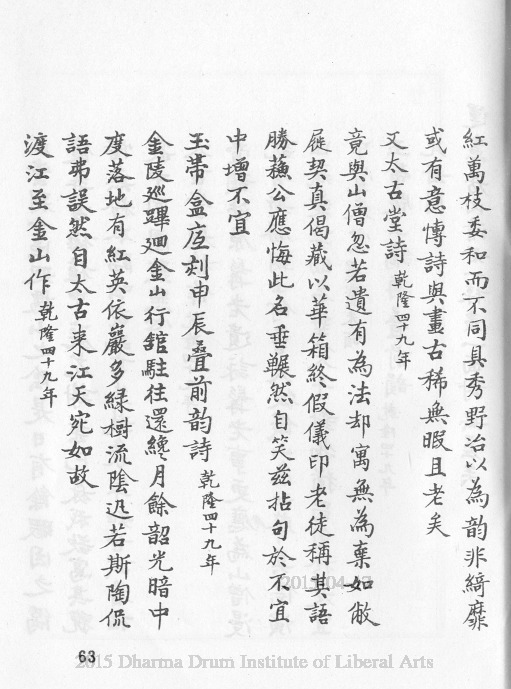 紅萬枝委和而不同具秀野冶以為韵非綺靡
或有意慱詩與畫古稀無暇且老矣
又太古堂詩 乾隆四十九年
竟與山僧忽若遺有為法却寓無為棄如敝
屣契真偈藏以華箱終假儀印老徒稱其語
勝蘓公應悔此名垂囅然自笑茲拈句於不宜
中增不宜
玉帶盒底刻申辰疊前韵詩 乾隆四十九年
金陵廵蹕廻金山行舘駐徃還纔月餘韶光暗中
度落地有紅英依巖多緑樹流隂迅若斯陶侃
語弗誤然自太古来江天宛如故
渡江至金山作 乾隆四十九年
63
2015 Dharma Drum Institute of Liberal Arts